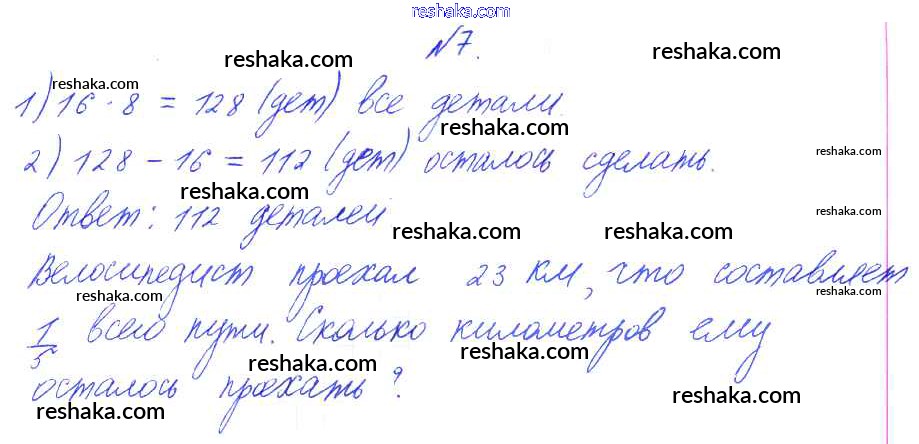 reshaka.com
№7.
reshaka.com reshaka.com
reshaka.com
1) 16 · 8 = 128 (дет) все детали.
reshaka.com
2) 128 - 16 = 112 (дет) осталось сделать.
reshaka.com
reshaka.com
Ответ: 112 деталей
reshaka.com
reshaka.com reshaka.com
Велосипедист проехал 23 км, что составляет
reshaka.com reshaka.com
1/5 всего пути. Сколько километров ему
reshaka.com
осталось проехать?
reshaka.com reshaka.com